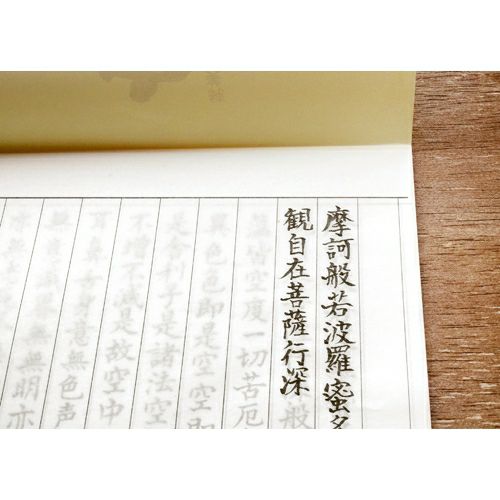 摩訶般若波羅蜜多
観自在菩薩行深般
皆空度一切苦厄
異色色即是空空即
子是諸法空
不増不減是故空中
耳鼻舌身意無色声
無明亦